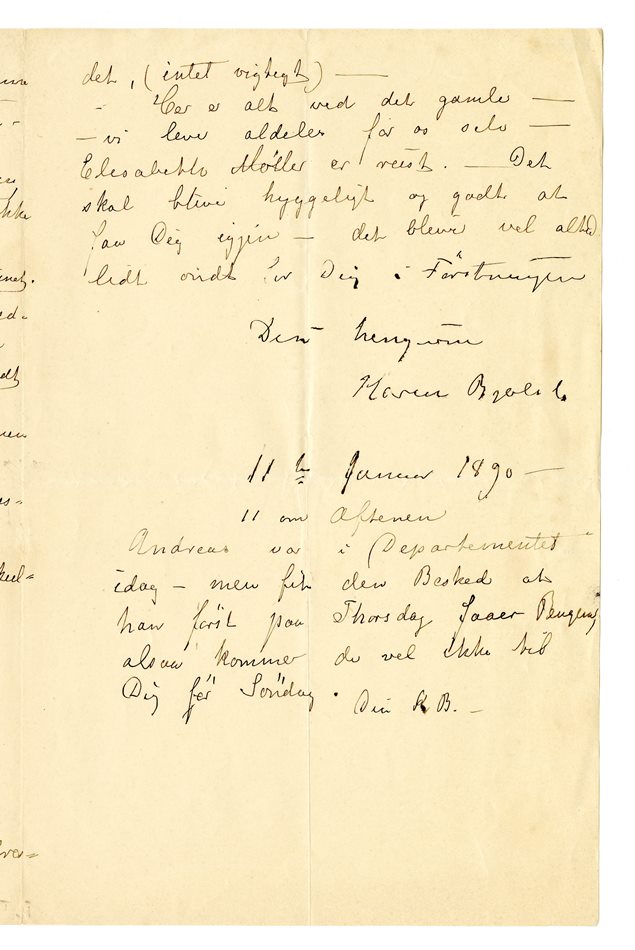 det, (intet vigtigt) —
- Her er alt ved det gamle —
- vi leve aldeles for os selv —
Elisabeth Møller er reist. — Det
skal blive hyggeligt og godt at
faa Dig igjen — det blever vel altid
lidt ondt for Dig i Førstningen
Din hengivne
Karen
11te Januar 1890 —
11 om Aftenen
Andreas var i Departementet
idag — men fik den Besked at
han først paa Thorsdag faaer Pengene,
alsaa kommer de vel ikke til
Dig før Søndag.
Din K B. —